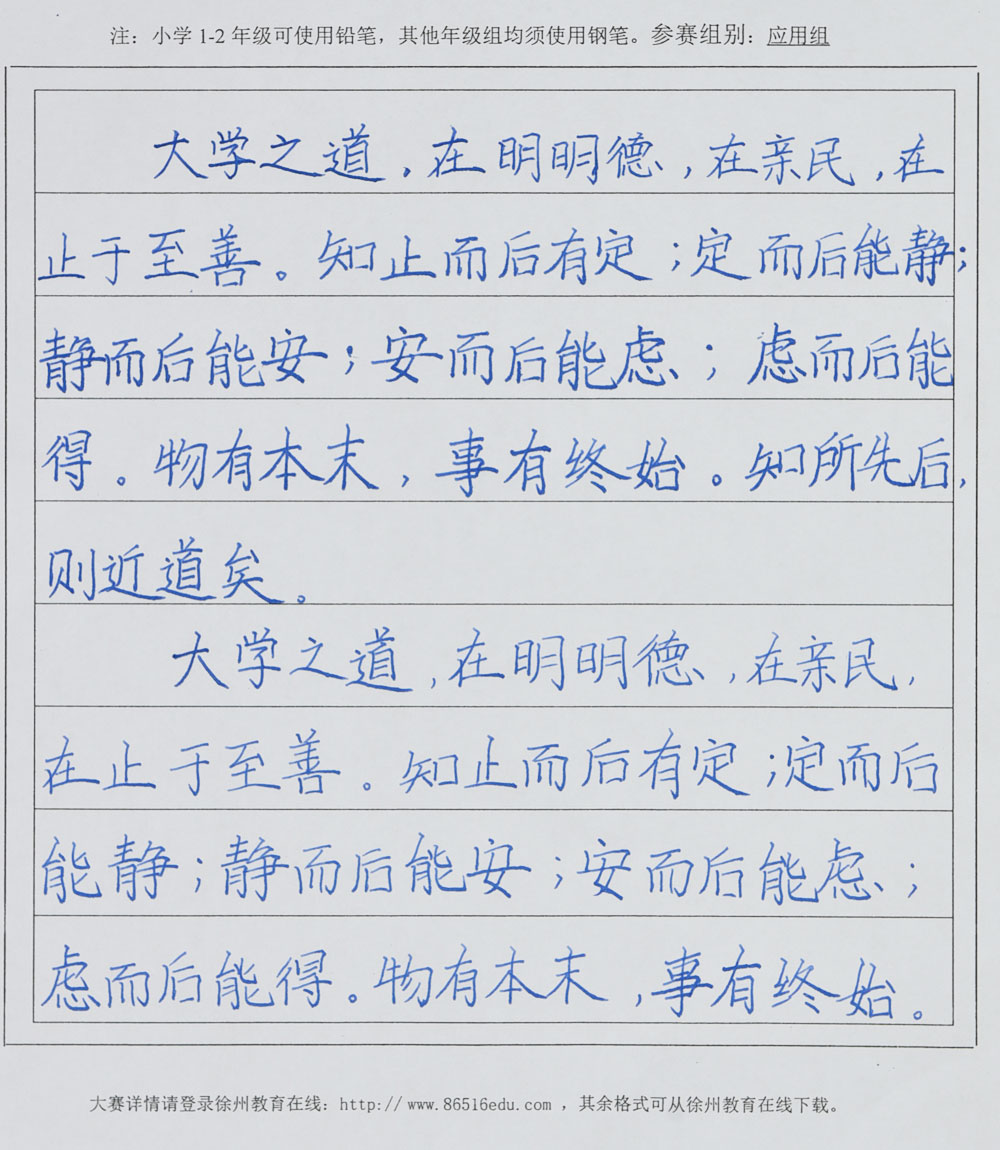 注：小学1-2年级可使用铅笔，其他年级组均须使用钢笔。参赛组别：应用组
大学之道，在明明德，在亲民，在
止于至善。知止而后有定；定而后能静；
静而后能安；安而后能虑；虑而后能
得。物有本末，事有终始。知所先后，
则近道矣。
大学之道，在明明德，在亲民，
在止于至善。知止而后有定；定而后
能静；静而后能安；安而后能虑；
虑而后能得。物有本末，事有终始。
大赛详情请登录徐州教育在线：http://www.86516edu.com，其余格式可从徐州教育在线下载。